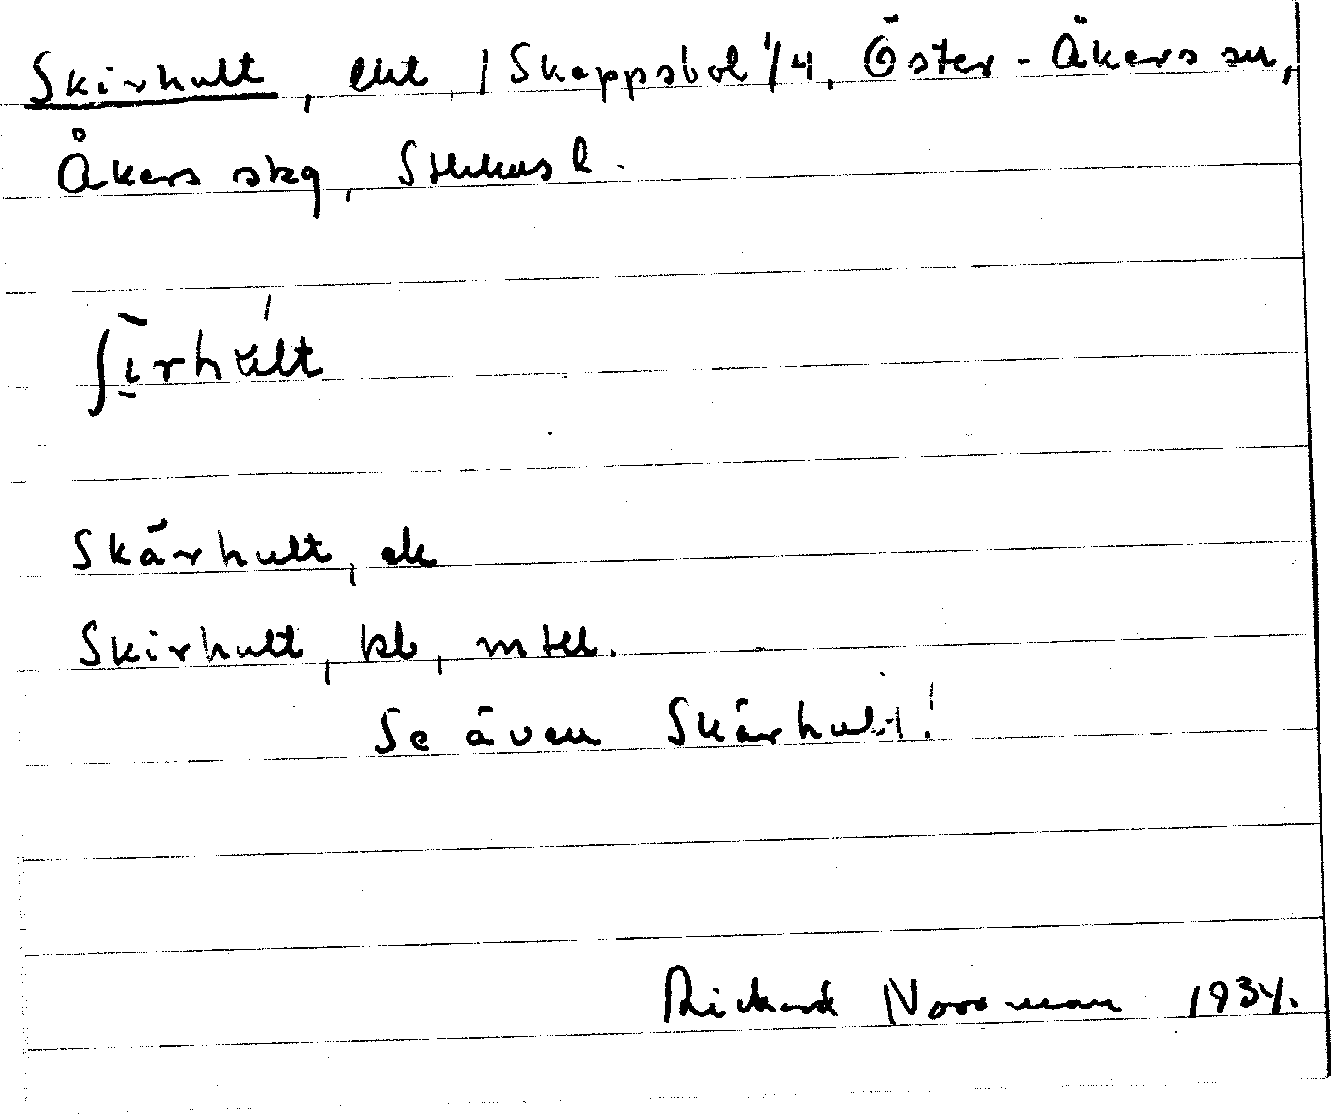 Skirhult, lht, / Skeppsbol 1/4, Öster-Åkers sn,
Åkers skg, Sthlms l.
ʃi̠̅rhúlt
Skärhult, ek
Skirhult, kb, mtll.
Se även Skärhult!
Rickard Norrman 1934.